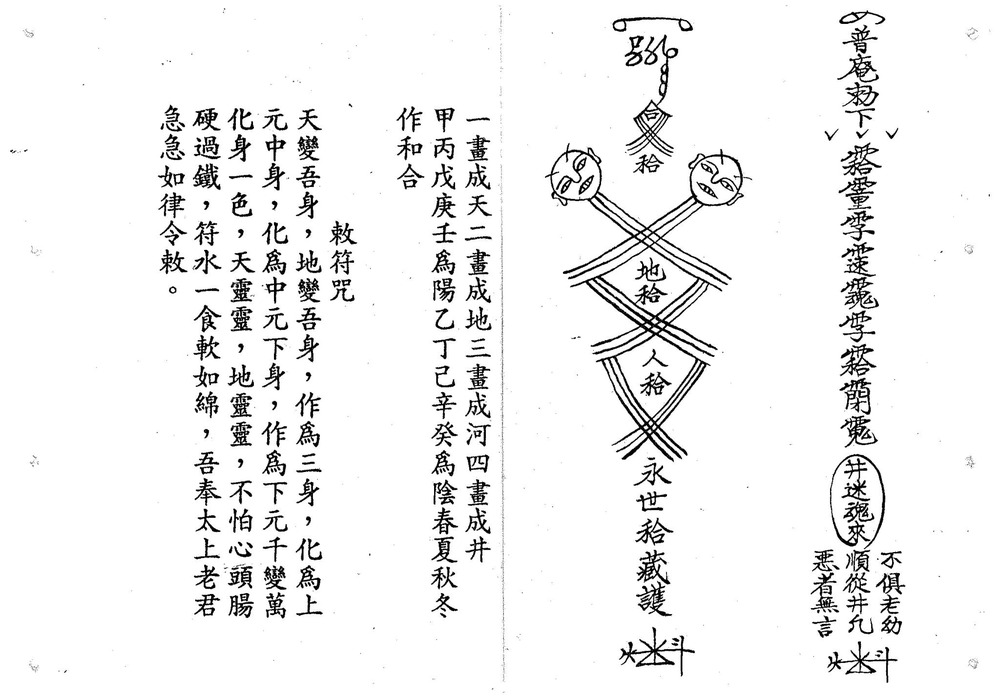 普庵勅下
井迷魂來
不俱老幼
順從井允
惡者無言
合
袷
地袷
人袷
永世袷藏護
火斗
一畫成天二畫成地三畫成河四畫成井
甲丙戊庚壬爲陽乙丁己辛癸爲陰春夏秋冬
作和合
敕符咒
天變吾身,地變吾身,作爲三身,化爲上
元中身,化爲中元下身,作爲下元千變萬
化身一色,天靈靈,地靈靈,不怕心頭腸
硬過鐵,符水一食軟如綿,吾奉太上老君
急急如律令敕。